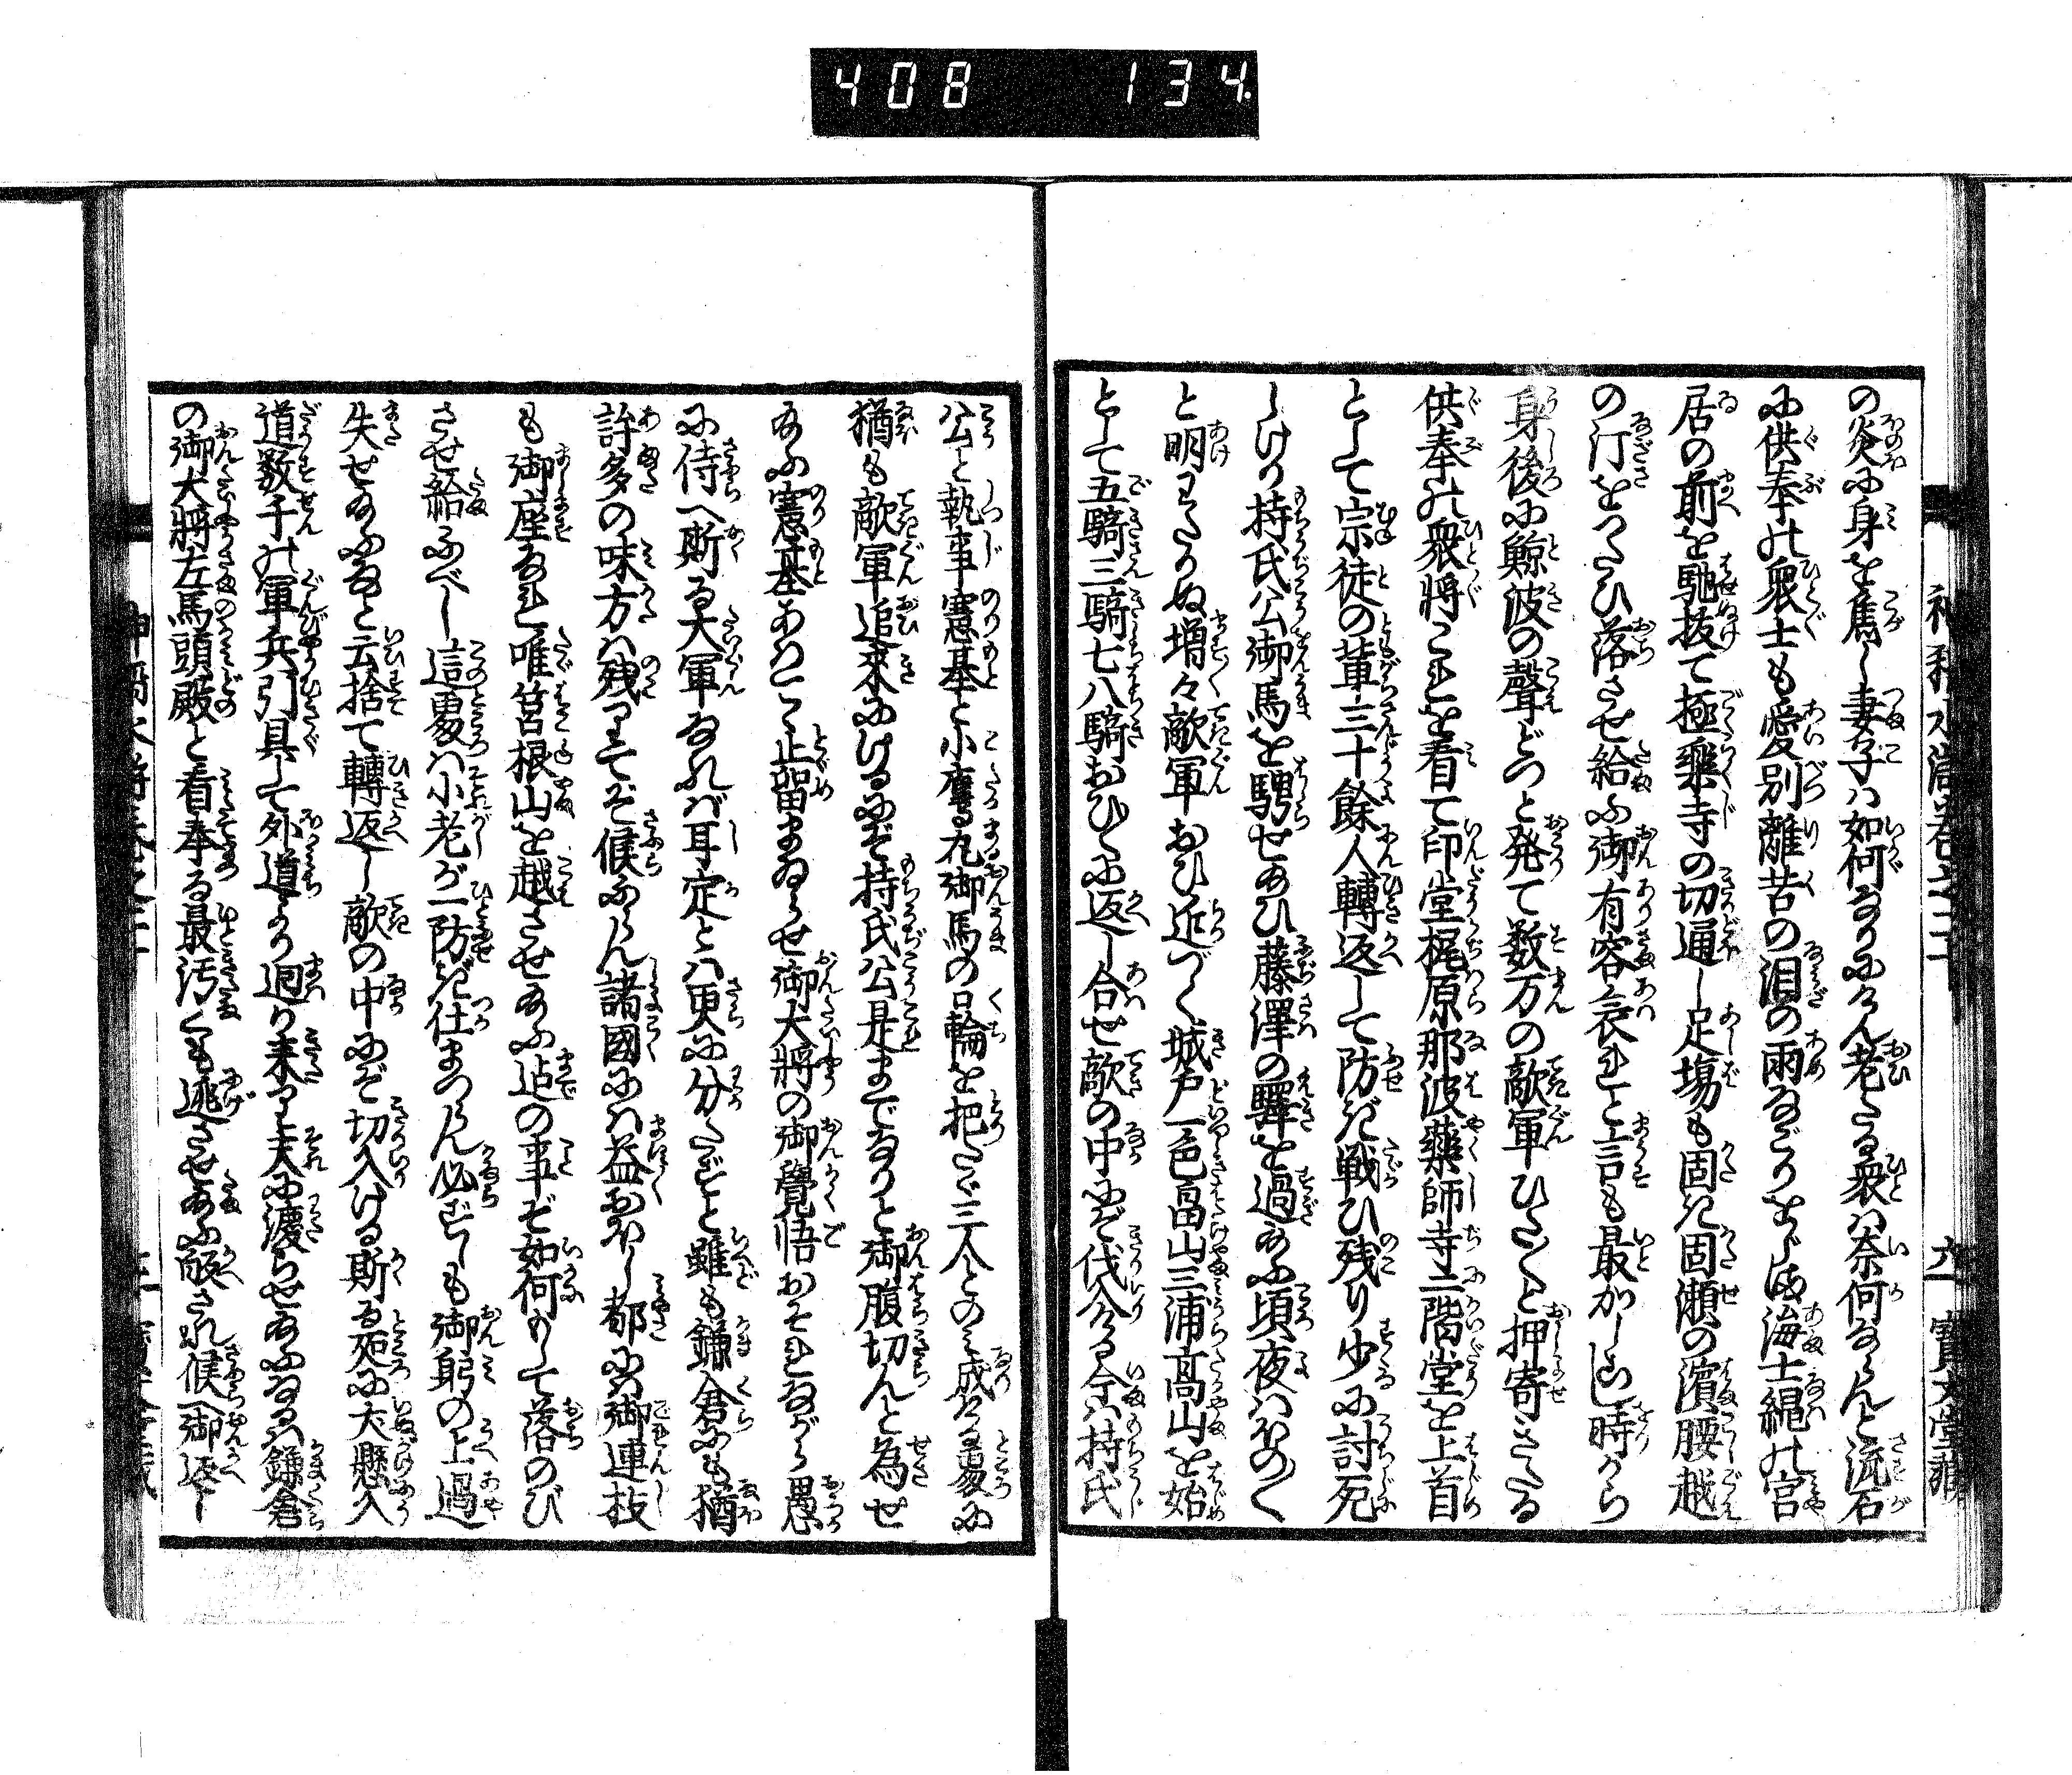 408 134
の炎に身を焦し妻子ハ如何なりにけん老たる衆ハ奈何ならんと流石
に供奉の衆士も愛別離苦の泪の雨などりをしほ海士縄の宮
居の前を馳抜て極楽寺の切通し足場も固き固瀬の濱腰越
の汀をつたひ落させ給ふ御有容哀れと言も最かしこし時から
身後に鯨波の聲どつと発て数万の敵軍ひた〳〵と押寄きたる
供奉の衆將これを看て印堂梶原那波薬師寺二階堂を上首
として宗徒の輩三十餘人轉返して防ぎ戦ひ残り少に討死
しけり持氏公御馬を騁せ給ひ藤澤の驛を過給ふ頃夜ハほの〴〵
と明わたりぬ増々敵軍おひ近づく城戸一色畠山三浦高山を始
として五騎三騎七八騎おひ〳〵に返し合せ敵の中にぞ伐入ける今ハ持氏
公と執事憲基と小鷹丸御馬の口輪を把たる三人とのミ成ける處に
猶も敵軍追來にけるにぞ持氏公是までなりと御腹切んと為せ
給ふ憲基あハてゝ止留まゐらせ御大將の御覺悟おそれながら愚
に侍へ斯る大軍なれバ耳定とハ更に分たずと雖も鎌倉にも猶
許多の味方ハ残りてぞ候ふらん諸國にハ益おほし都にハ御連枝
も御座なれ唯筥根山を越させ給ふ迠の事ぞ如何にして落のび
させ給ふべし這處ハ小老が一防ぎ仕まつらん必ずしも御躬の上過
失せ給ふなと云捨て轉返し敵の中にぞ切入ける斯る処に犬懸入
道数千の軍兵引具して外道より廻り来り夫に渡らせ給ふなるハ鎌倉
の御大將左馬頭殿と看奉る最汚くも逃させ給ふ歟返され候へ御返し